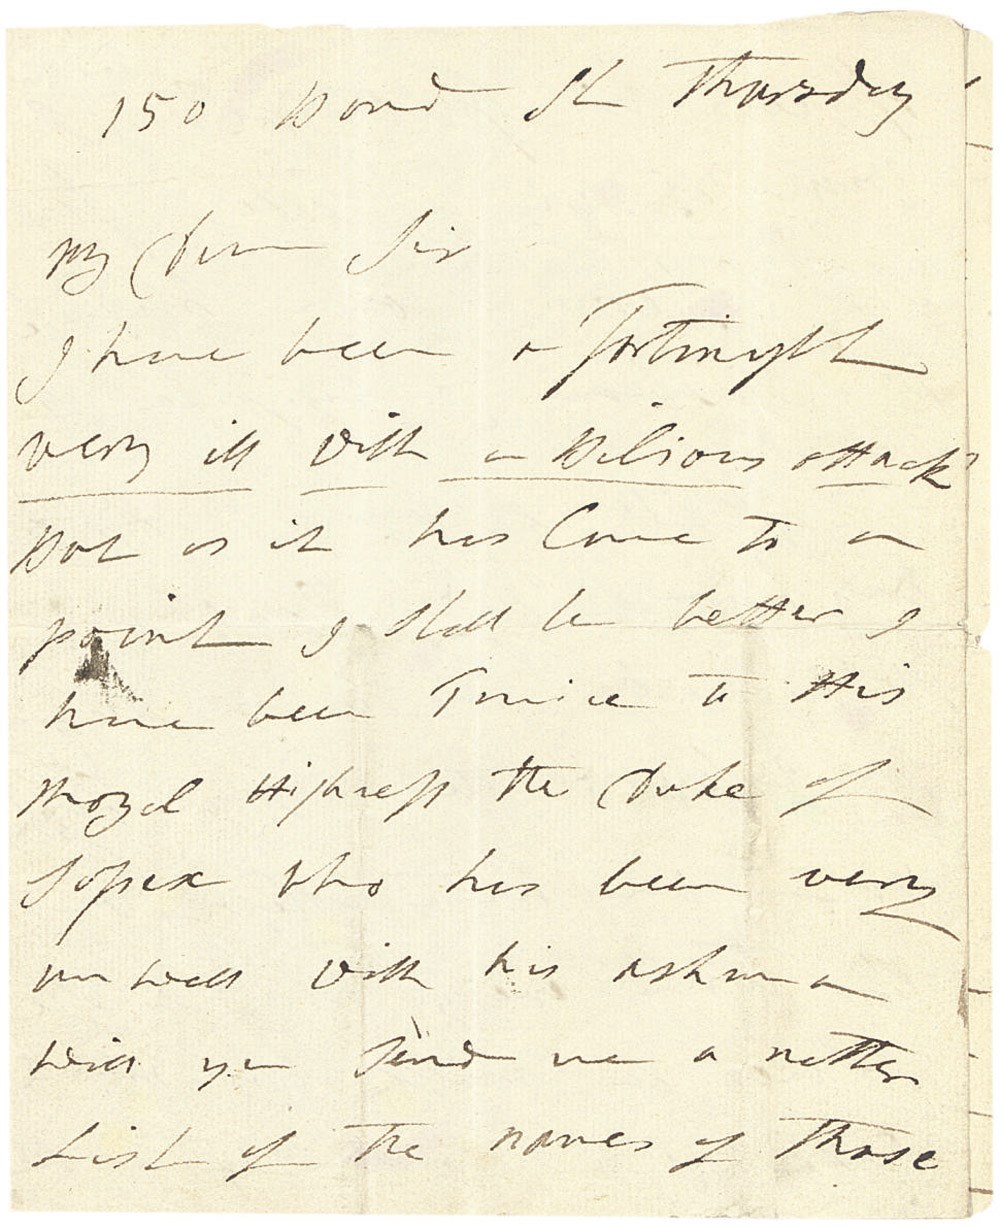 150 Bond St Thursday
My Dear Sir
I have been a Fortinyht
very ill with a Bilious attack
But as it has Come To a
point I shall be better I
have been Twice to His
Royal Highness the Duke of
Sosex who has been very
un well with his ashma
will you send me a nother
List of The names of Those